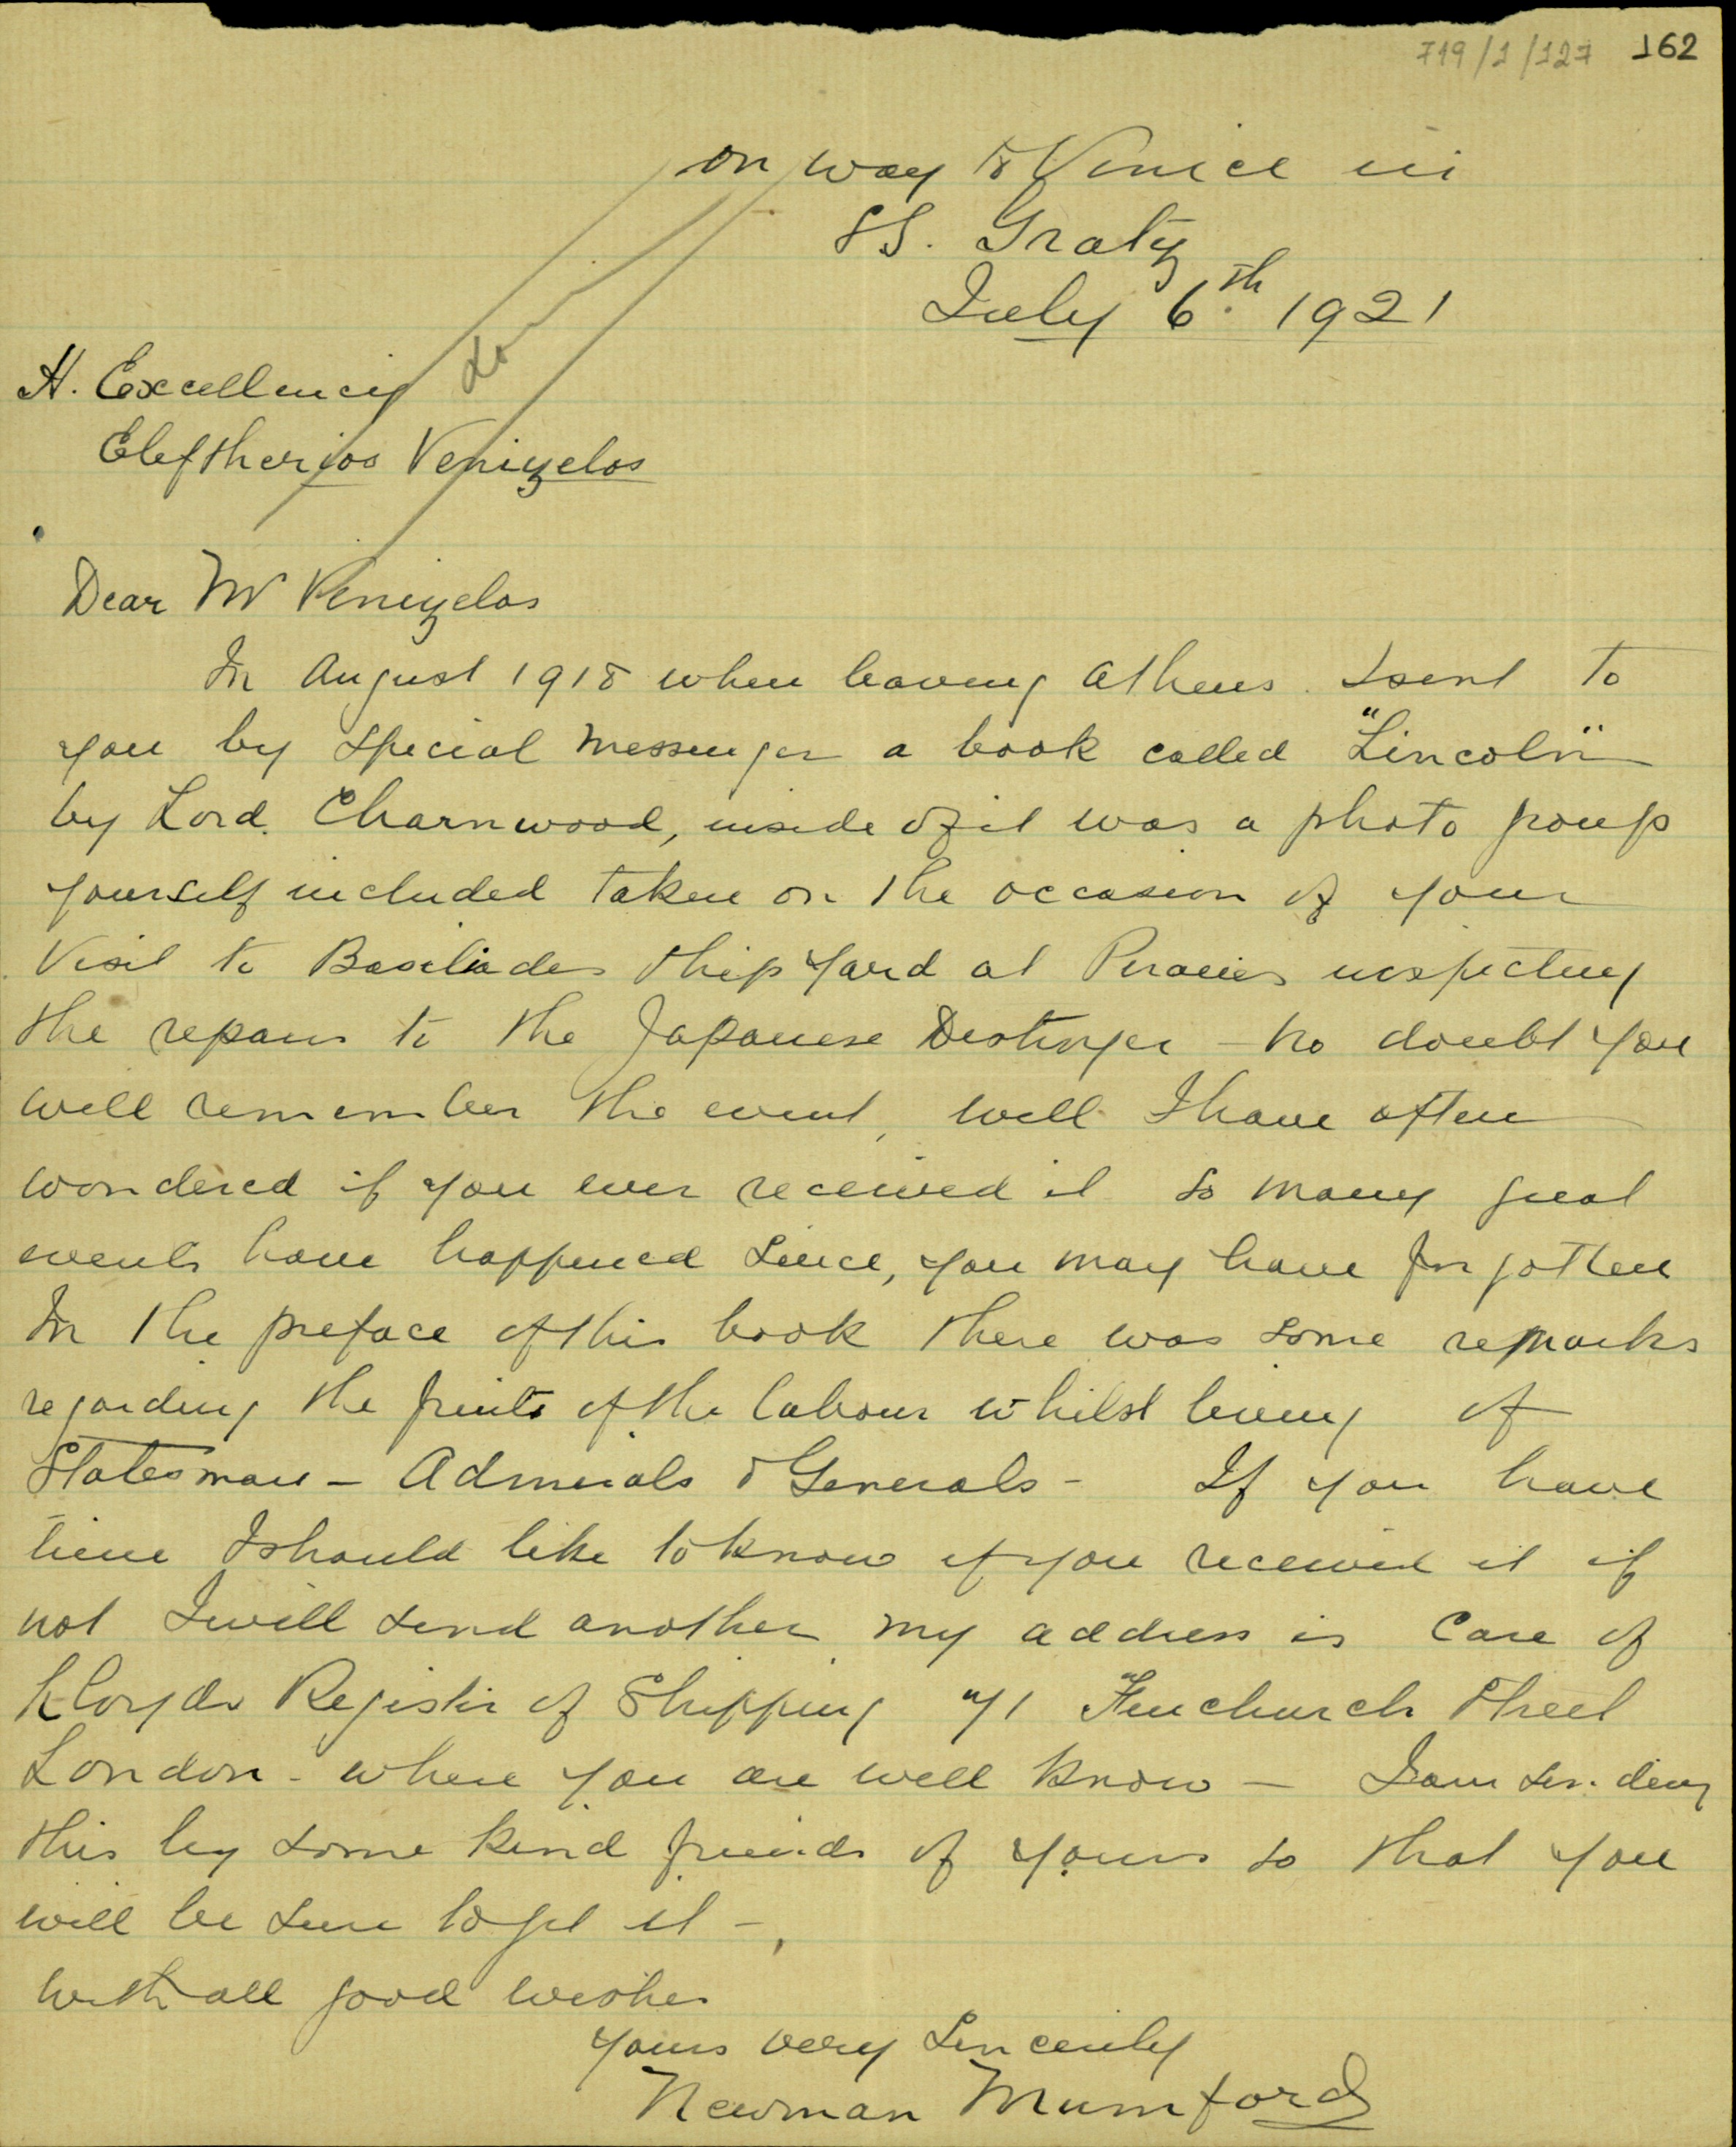 719/1/127 162
on way to Venice in
SS. Gratz
July 6th. 1921
H. Excellency
Eleftherios Venizelos
Dear Mr Venizelos
In August 1918 when leaving Athens I sent to
you by special messenger a book called "Lincoln"
by Lord. Charnwood, inside of it was a photo group
yourself included taken on the occasion of your
Visit to Basiliades Ship Yard at Piraeus inspecting
the repairs to the Japanese Destroyer - no doubt you
will remember the event, well I have often
wondered if you ever received it so many great
events have happened since, you may have forgotten
In the preface of this book there was some remarks
regarding the fruits of the labour whilst living of
Statesman - Admirals & Generals - If you have
time I should like to know if you received it if
not I will send another my address is Care of
Lloyds Register of Shipping 71 Fenchurch Street
London - where you are well know - I am sending
this by some kind friends of yours so that you
will be sure to get it -
with all good wishes
yours very sincerely
Newman Mumford